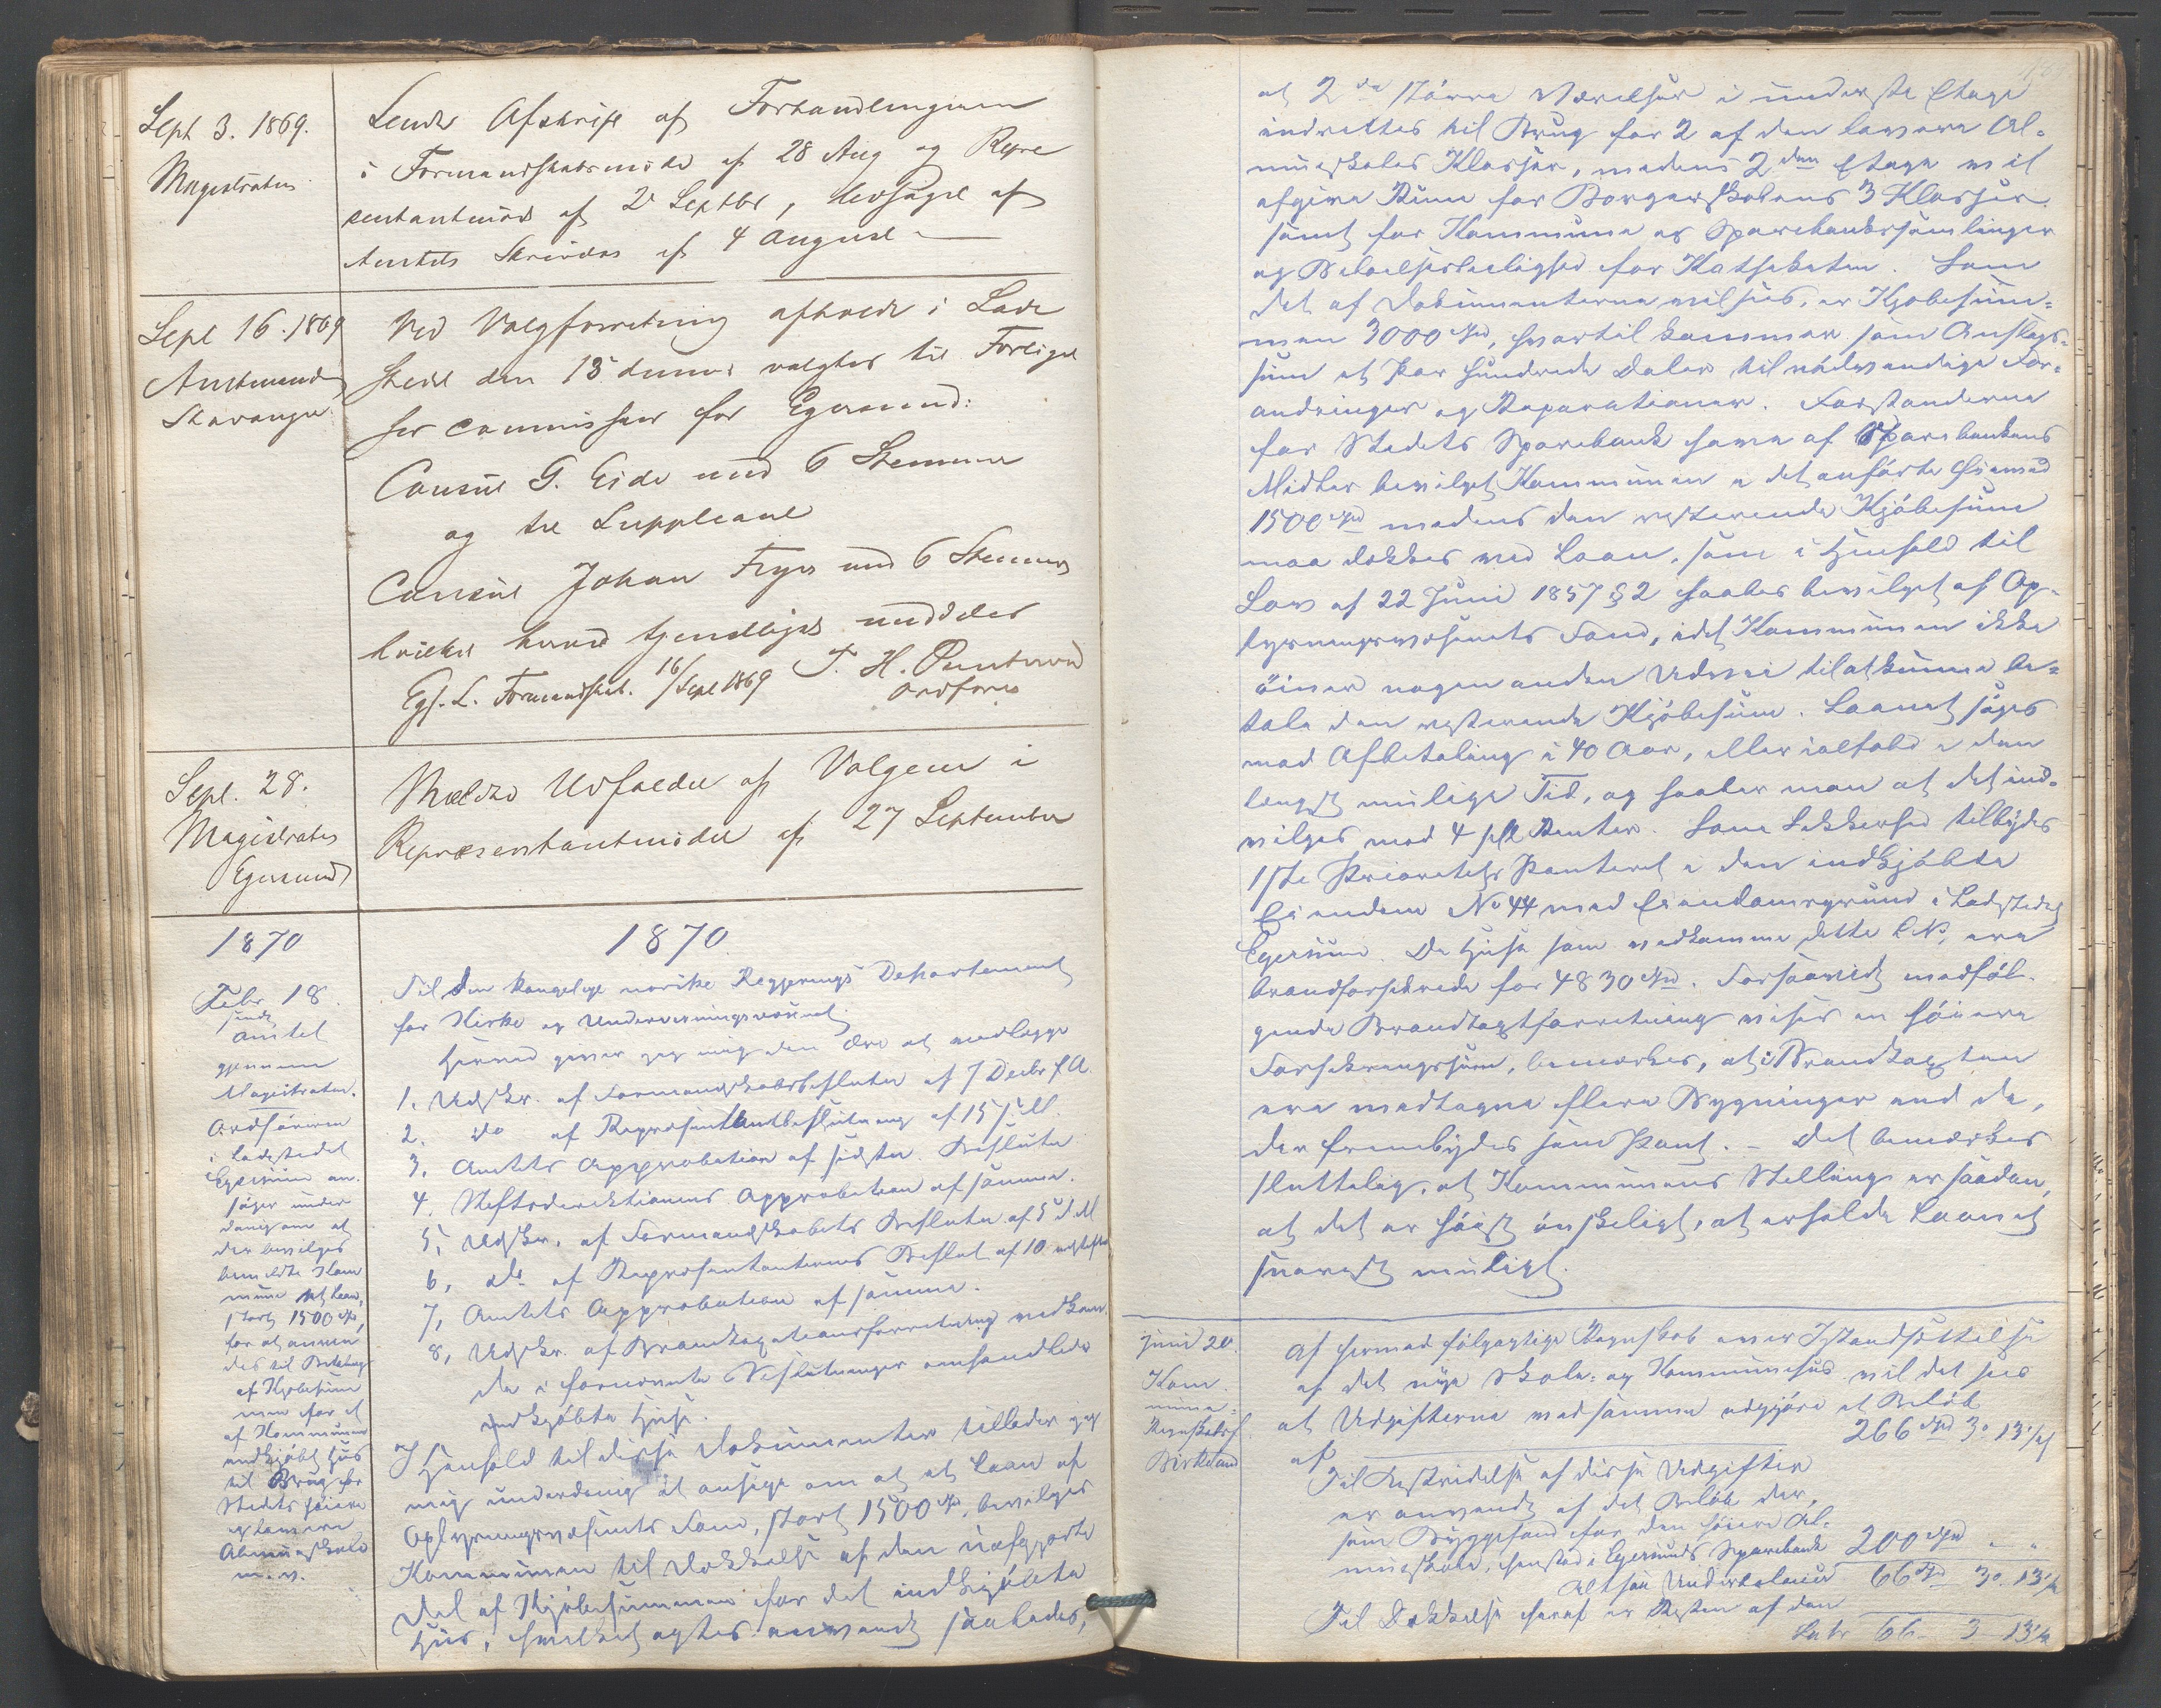 Sept 3. 1869.
Magistraten
Sender Afskrift af Forhandlingerne
i Formandskabsmöde af 28 Aug og Repræ
sentantmöde af 2 Septbr, ledsaget af
Amtets Skrivelse af 4 August
Sept 16. 1869
Amtmanden
Stavanger
Ved Valgforretning afholdt i Lade
stedet den 15 dennes valgtes til Forligel
ses commissær for Egersund:
Consul G. Eide med 6 Stemmer
og til Suppleant
Consul Johan Feyer med 6 Stemmer
hvilket herved tjenstligst meddeles
Egs. L. Formandskab. 16/Sept 1869 T. H. Puntervold
Ordförer
Sept. 28.
Magistraten
Egersund
Melder Udfaldet af Valgene i
Repræsentantmödet af 27 September
1870
1870
Febr 18.
sendt
Amtet
gjennem
Magistraten.
Ordföreren
i Ladestedet
Egersund an-
söger under
danigst om at
der bevilges
bemeldte Kom
mune et Laan,
stort 1500 Spd,
for at anven
des til Betaling
af Kjöbesum
men for et
af Kommunen
indkjöbt Huus
til Brug for
Stedets höiere
og lavere
Almueskole
m. v.
Til den kongelige norske Regjerings Departement
for Kirke og Undervisningsvæsenet.
Herved giver jeg mig den Ære at vedlægge
1. Udskr. af Formandskabsbeslutn af 7 Decbr f. A.
2. do af Repræsentantbeslutning af 15 s. M.
3. Amtets Approbation af sidste Beslutn
4. Stiftsdirektionens Approbation af samme.
5. Udskr. af Formandskabets Beslutn af 5 d. M
6, do af Repræsentanternes Beslut af 10 næstefter
7, Amtets Approbation af samme.
8, Udskr. af Brandtaxationsforretning vedkom
de i fornævnte Beslutninger omhandlede
indkjöbte Huse.
I Henhold til disse Dokumenter tillader jeg
mig underdanig at ansöge om at et Laan af
Oplysningsvæsenets Fond, stort 1500 Spd, bevilges
Kommunen til Dækkelse af den uafgjorte
Del af Kjöbesummen for det indkjöbte
Huus, hvilket agtes anvendt saaledes,
at 2de större Værelser i underste Etage
indrettes til Brug for 2 af den lavere Al=
mueskoles Klasser, medens 2den Etage vil
afgive Rum for Borgerskolens 3 Klasser
samt for Kommune og Sparebanksamlinger
og Beboelsesleilighed for Katheketen. Som
det af Dokumenterne vil sees, er Kjöbesum=
men 3000 Spd, hvortil kommer som Anslags=
sum et Par hundrede Daler til nödvendige For=
andringer og Reparationer. Forstanderne
for Stedets Sparebank have af Sparebankens
Midler bevilget Kommunen i det anförte Öiemed
1500 Spd medens den resterende Kjöbesum
maa dækkes ved Laan, som i Henhold til
Lov af 22 Juni 1857 § 2 haabes bevilget af Op=
lysningsvæsenets Fond, idet Kommunen ikke
öiner nogen anden Udvei til at kunne be=
tale den resterende Kjöbesum. Laanet söges
med Afbetaling i 40 Aar, eller ialfald i den
længst mulige Tid, og haaber man at det ind=
vilges mod 4 pCt Renter. Som Sikkerhed tilbydes
1ste Prioritets Panteret i den indkjöbte
Eiendom No 44 med Eiendomsgrund i Ladestedet
Egersund. De Huse som vedkomme dette L.No, ere
brandforsikrede for 4830 Spd. Forsaavidt medföl-
gende Brandtaxtforretning viser en höiere
Forsikringssum, bemærkes, at i Brandtaxten
ere medtagne flere Bygninger end de,
der frembydes som Pant. - Det bemærkes
sluttelig, at Kommunens Stilling er saadan,
at det er höist önskeligt, at erholde Laanet
snarest muligt.
Juni 20.
Kom
mune=
Regnskabsf.
Birkeland
Af hermed fölgagtige Regnskab over Istandsættelse
af det nye Skole= og Kommunehus vil det sees
at Udgifterne ved samme udgjöre et Belöb
af 266 Spd 3. 13 1/2 s
Til Bestridelse af disse Udgifter
er anvendt af det Belöb der,
som Byggefond for den höiere Al=
mueskole, henstod i Egersunds Sparebank 200 Spd " "
Altsaa Underbalance 66 Spd 3. 13 1/2
Til Dækkelse heraf er Resten af den
Latr 66 3 13 1/2